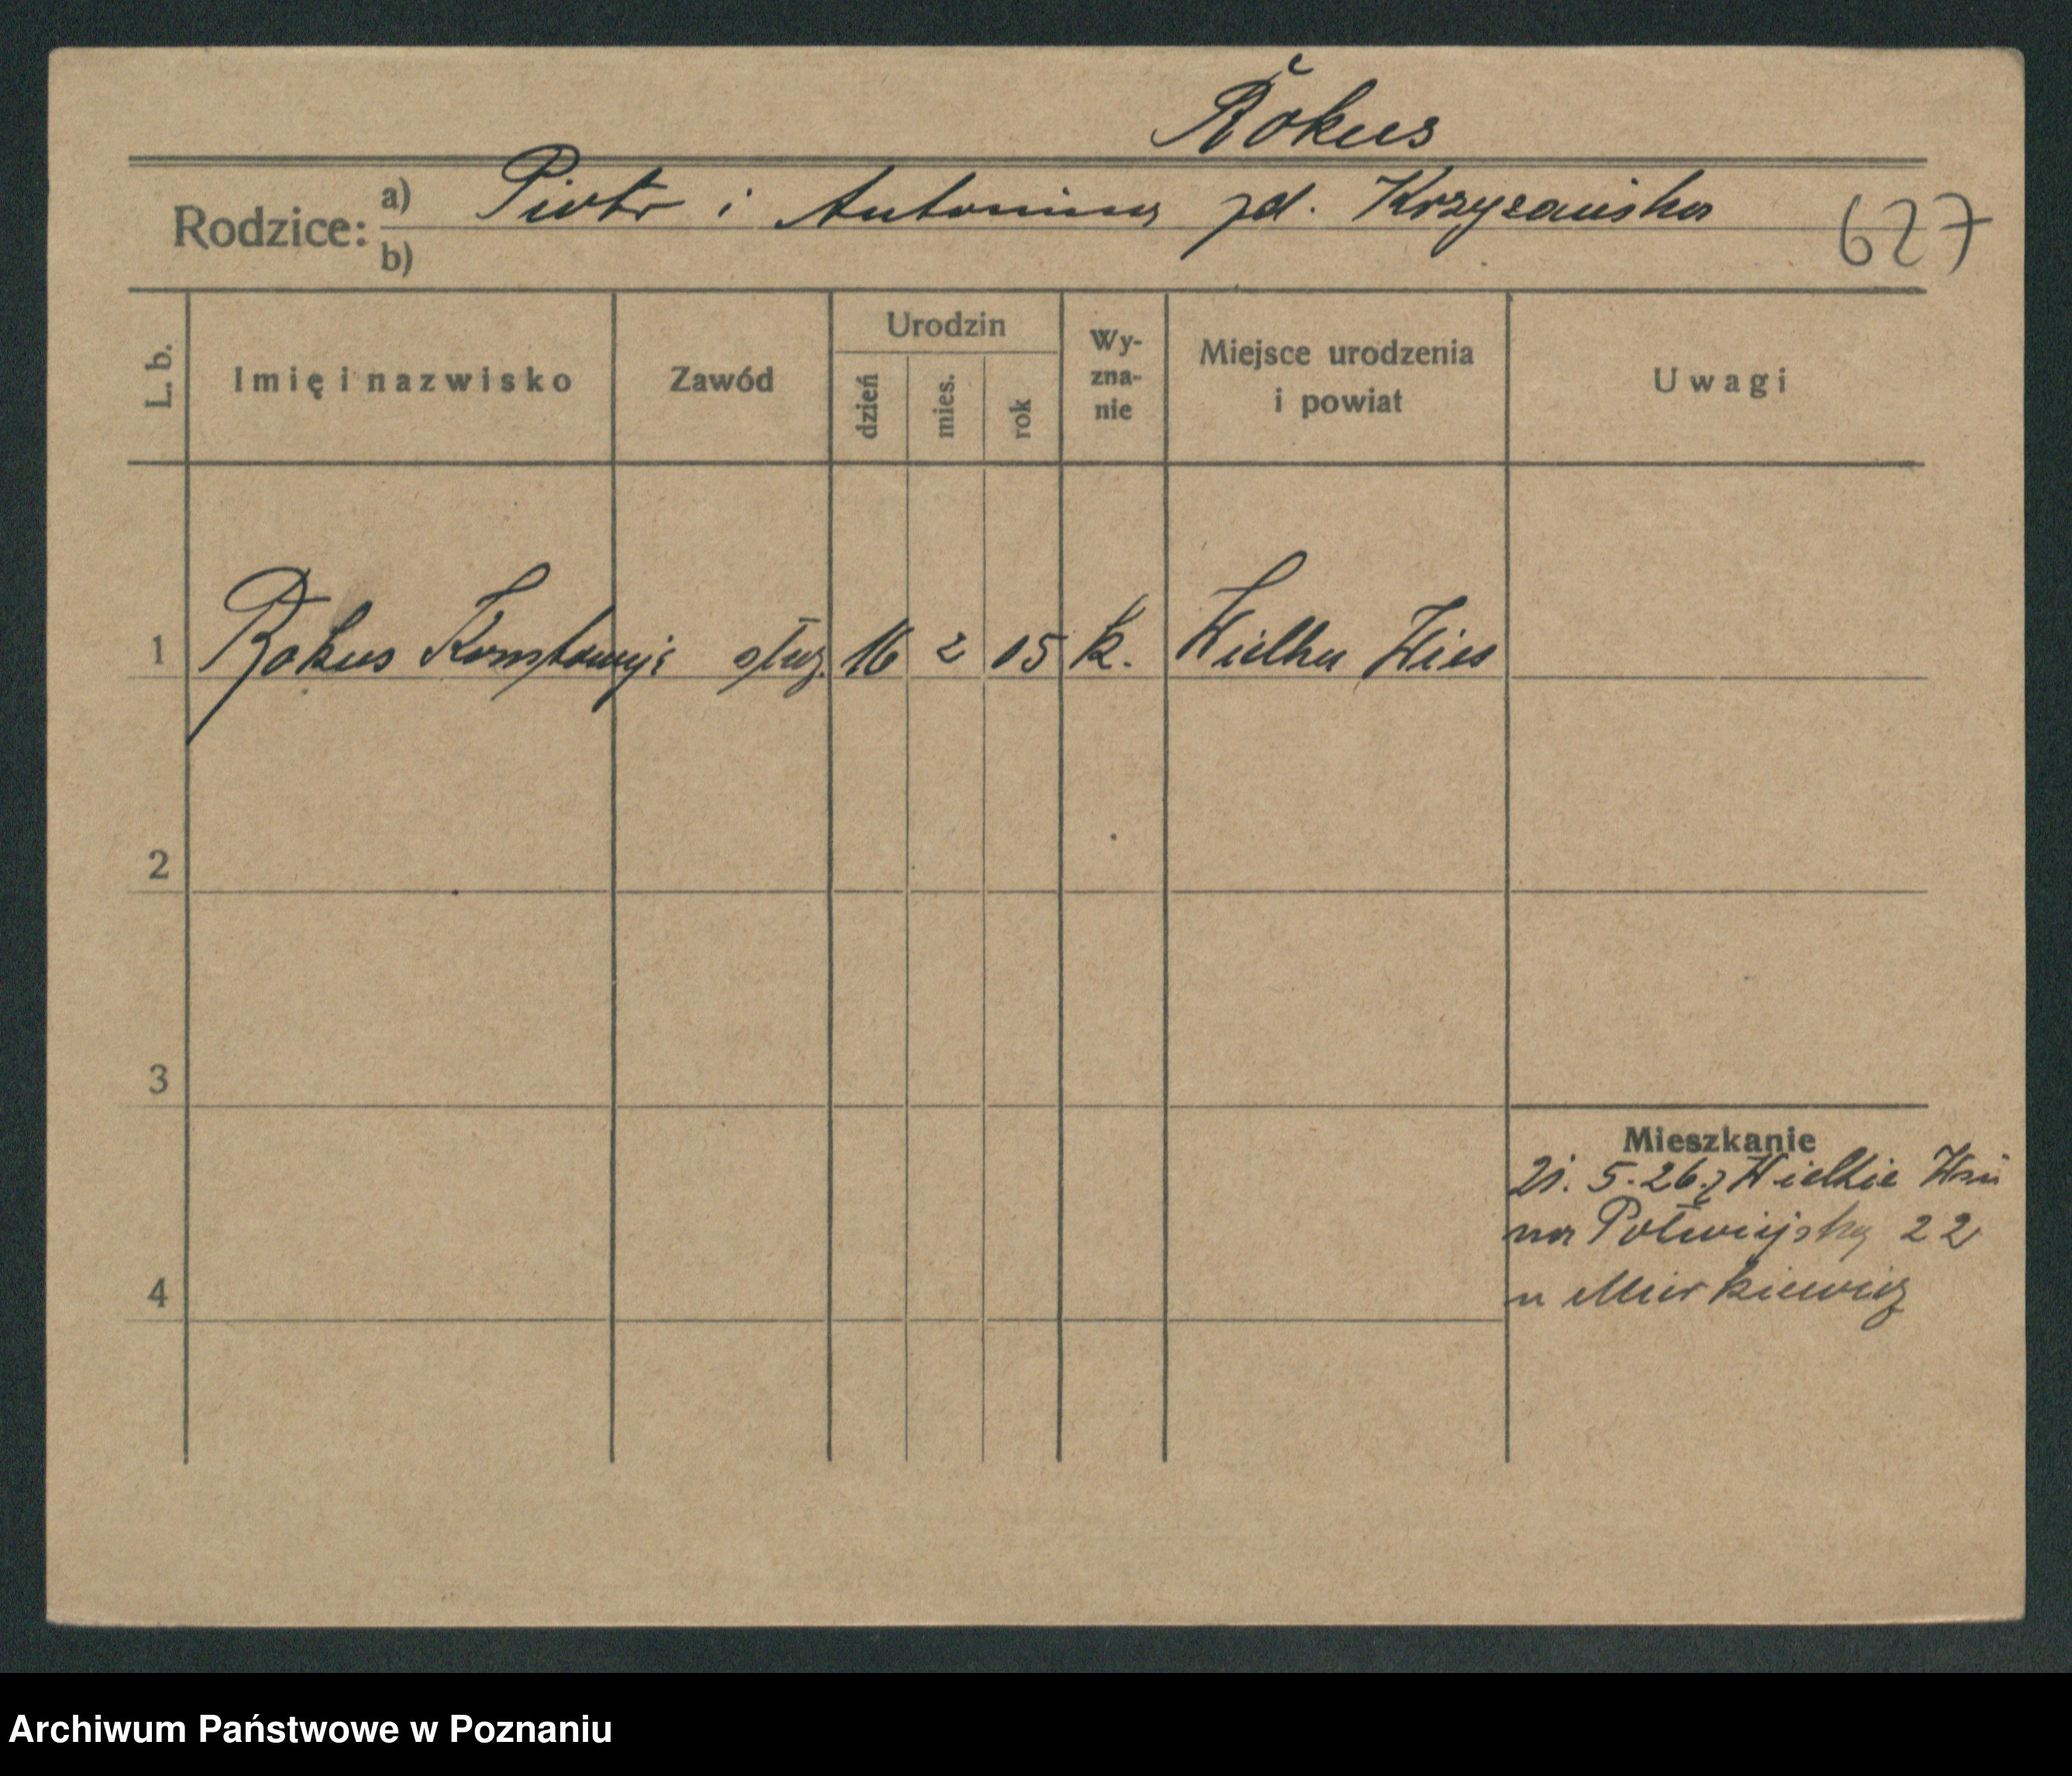 Rokus
Rodzice: a) Piotr i Antonina zd. Krzyżańska
b)
627
L. b. Imię i nazwisko Zawód Urodzin dzień mies. rok Wy-zna-nie Miejsce urodzenia i powiat Uwagi
1 Rokus służ. 16 2 05 k. Wielka Wieś
2
3
Mieszkanie
21. 5. 26 z Wielkie Wsi
na Półwiejską 22
4
u Mirkiewicz
Archiwum Państwowe w Poznaniu